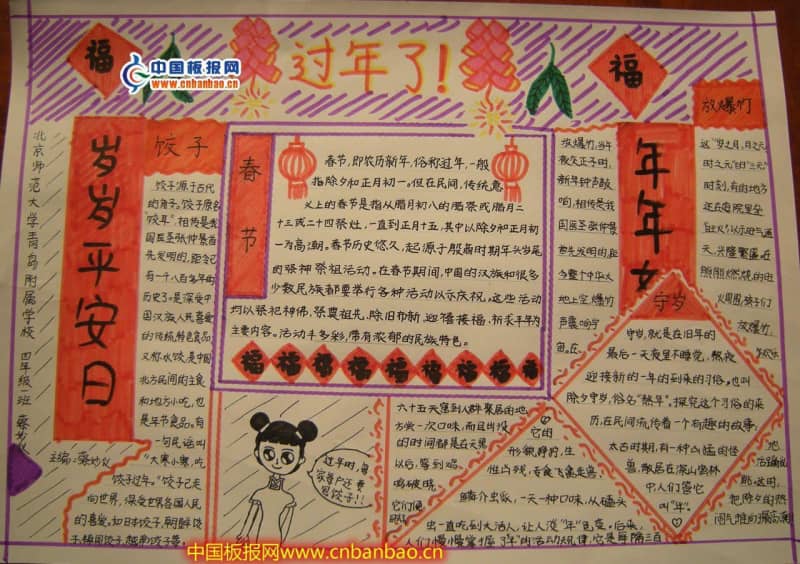 福
中国板报网
www.cnbanbao.cn
过年了!
福
北京师范大学青岛附属学校 四年级一班
岁岁平安日
主编:
饺子
饺子源于古代
的角子。饺子原名
国医圣张仲景首
先发明的,距今已
有一千八百多年的
历史了。是深受中
国汉族人民喜爱
的传统特色食品,
又称水饺,是中国
北方民间的主食
和地方小吃,也
是年节食品。有
一句民谣叫
“大寒小寒,吃
饺子过年。”饺子已走
向世界,深受世界各国人民
的喜爱。如日本饺子,朝鲜饺
春节
春节,即农历新年,俗称过年,一般
指除夕和正月初一。但在民间,传统意
义上的春节是指从腊月初八的腊祭或腊月二
十三或二十四祭灶,一直到正月十五,其中以除夕和正月初
一为高潮。春节历史悠久,起源于殷商时期年头岁尾
的祭神祭祖活动。在春节期间,中国的汉族和很多
少数民族都要举行各种活动以示庆祝。这些活动
均以祭祀神佛、祭奠祖先、除旧布新、迎禧接福、祈求丰年为
主要内容。活动丰多彩,带有浓郁的民族特色。
福福福福福福福福福
过年时,每
家每户还要
包饺子!!
放爆竹
放爆竹,当午
夜交正子时,
新年钟声敲
响,相传是我
国医圣张仲景
首先发明的,距
今整个中华大
地上空,爆竹
声震响宇
年年
放爆竹
这“岁之月,月之元,
时之元”的“三元”
时刻,有的地方
还在庭院里垒
天,兴隆繁盛。在
熊熊燃烧的旺
火周围,孩子们
放爆竹,
守岁
守岁,就是在旧年的
最后一天夜里不睡觉,熬夜
迎接新的一年的到来的习俗。也叫
除夕守岁,俗名“熬年”。探究这个习俗的来
历,在民间流传着一个有趣的故事:
太古时期,有一种凶猛的怪
兽,散居在深山密林
中,人们管它
叫“年”。
它的
形貌狰狞,生
性凶残,专食飞禽走兽、
鳞介虫豸,一天一种口味,从磕头
虫一直吃到大活人,让人谈“年”色变。后来,
人们慢慢掌握了“年”的活动规律,它是每隔三百
六十五天窜到人群聚居的地
方尝一次口味,而且出没
的时间都是在天黑
以后,等到鸡
鸣破晓,
它们便
中国板报网www.cnbanbao.cn